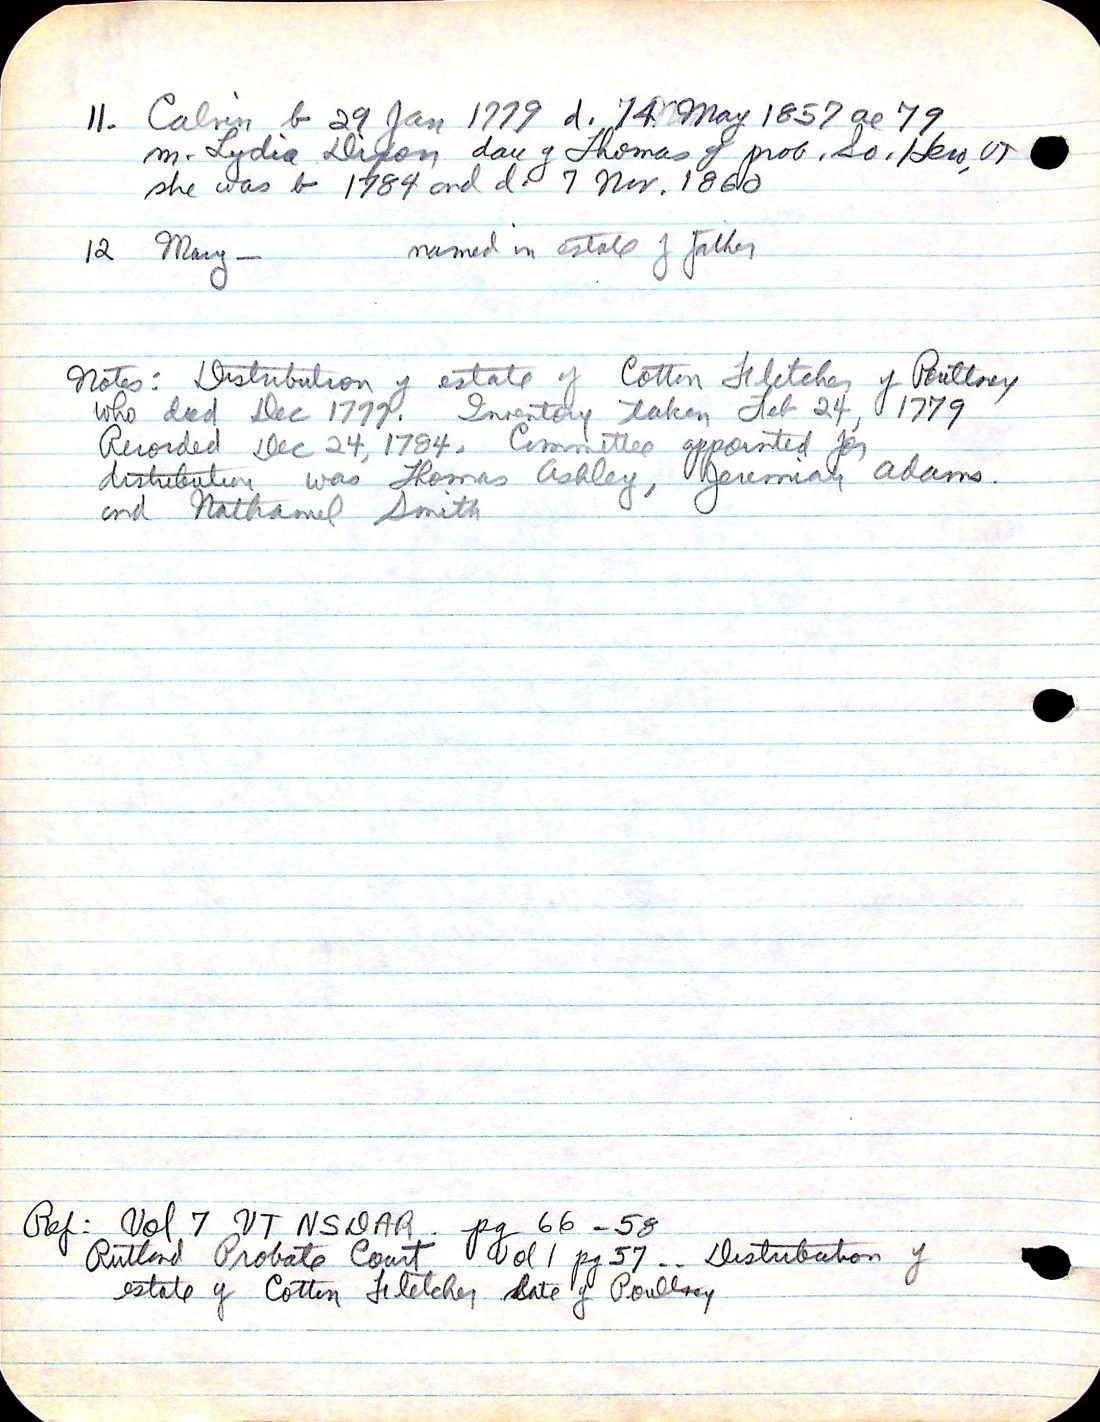 11. Calvin b 29 Jan 1779 d. May 1857 ae 79
m. Lydia Dixon dau of Thomas of prob. So. Hero, VT
she was b 1784 and d. 7 Nov. 1860
12 Mary — named in estate of father
Notes: Distribution of estate of Cotton Fletcher of Poultney
who died Dec Inventory taken Feb 24, 1779
Recorded Dec 24, 1784. Committee appointed for
distribution was Thomas Ashley, Jeremiah Adams.
and Nathaniel Smith
Ref: Vol 7 VT NSDAR. pg 66 - 58
Rutland Probate Court Vol 1 pg 57 -- Distribution of
estate of Cotton Fletcher late of Poultney